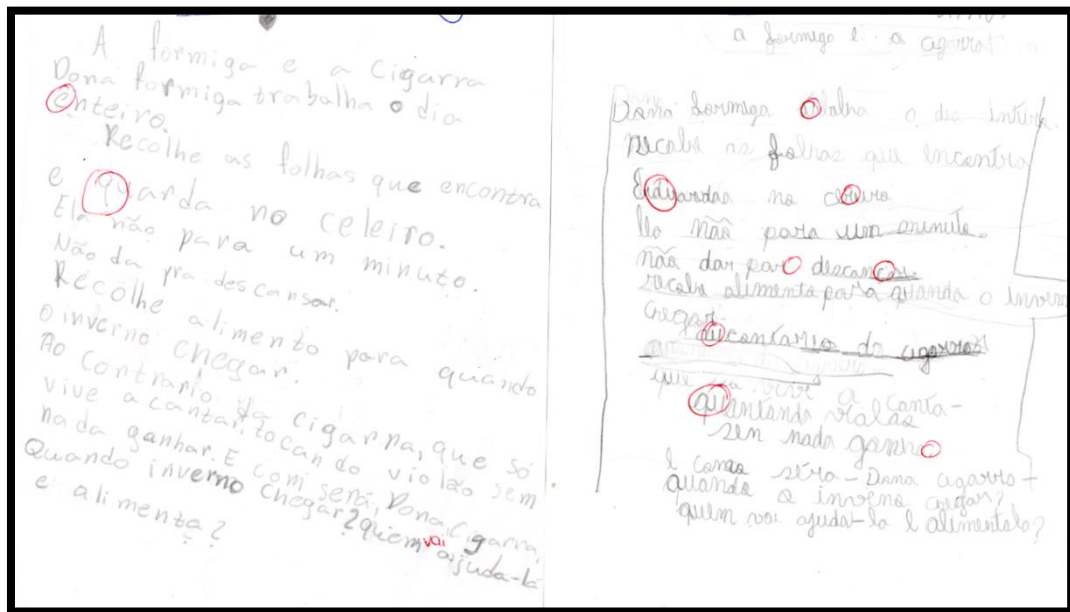 A formiga e a cigarra
Dona formiga trabalha o dia
enteiro.
Recolhe as folhas que encontra
e quarda no celeiro.
Ela não para um minuto.
Não da pra descansar.
Recolhe alimento para quando
o inverno chegar.
Ao contrario da cigarra, que só
vive a cantar, tocando violão sem
nada ganhar. E com será, Dona Cigarra,
Quando inverno chegar? quem vai ajuda-la
e alimenta?
a formiga e a cigarra
Dona formiga o dia
recolhe as folhas que encontra
no
Ela não para um minuto.
não dar para descançar
recolhe alimento para quando o inverno
chegar.
da cigarra
que vive a canta-
violão
sen nada
e como séra - Dona cigarra -
quando o inverno chegar?
quem vai ajuda-la e alimentala?